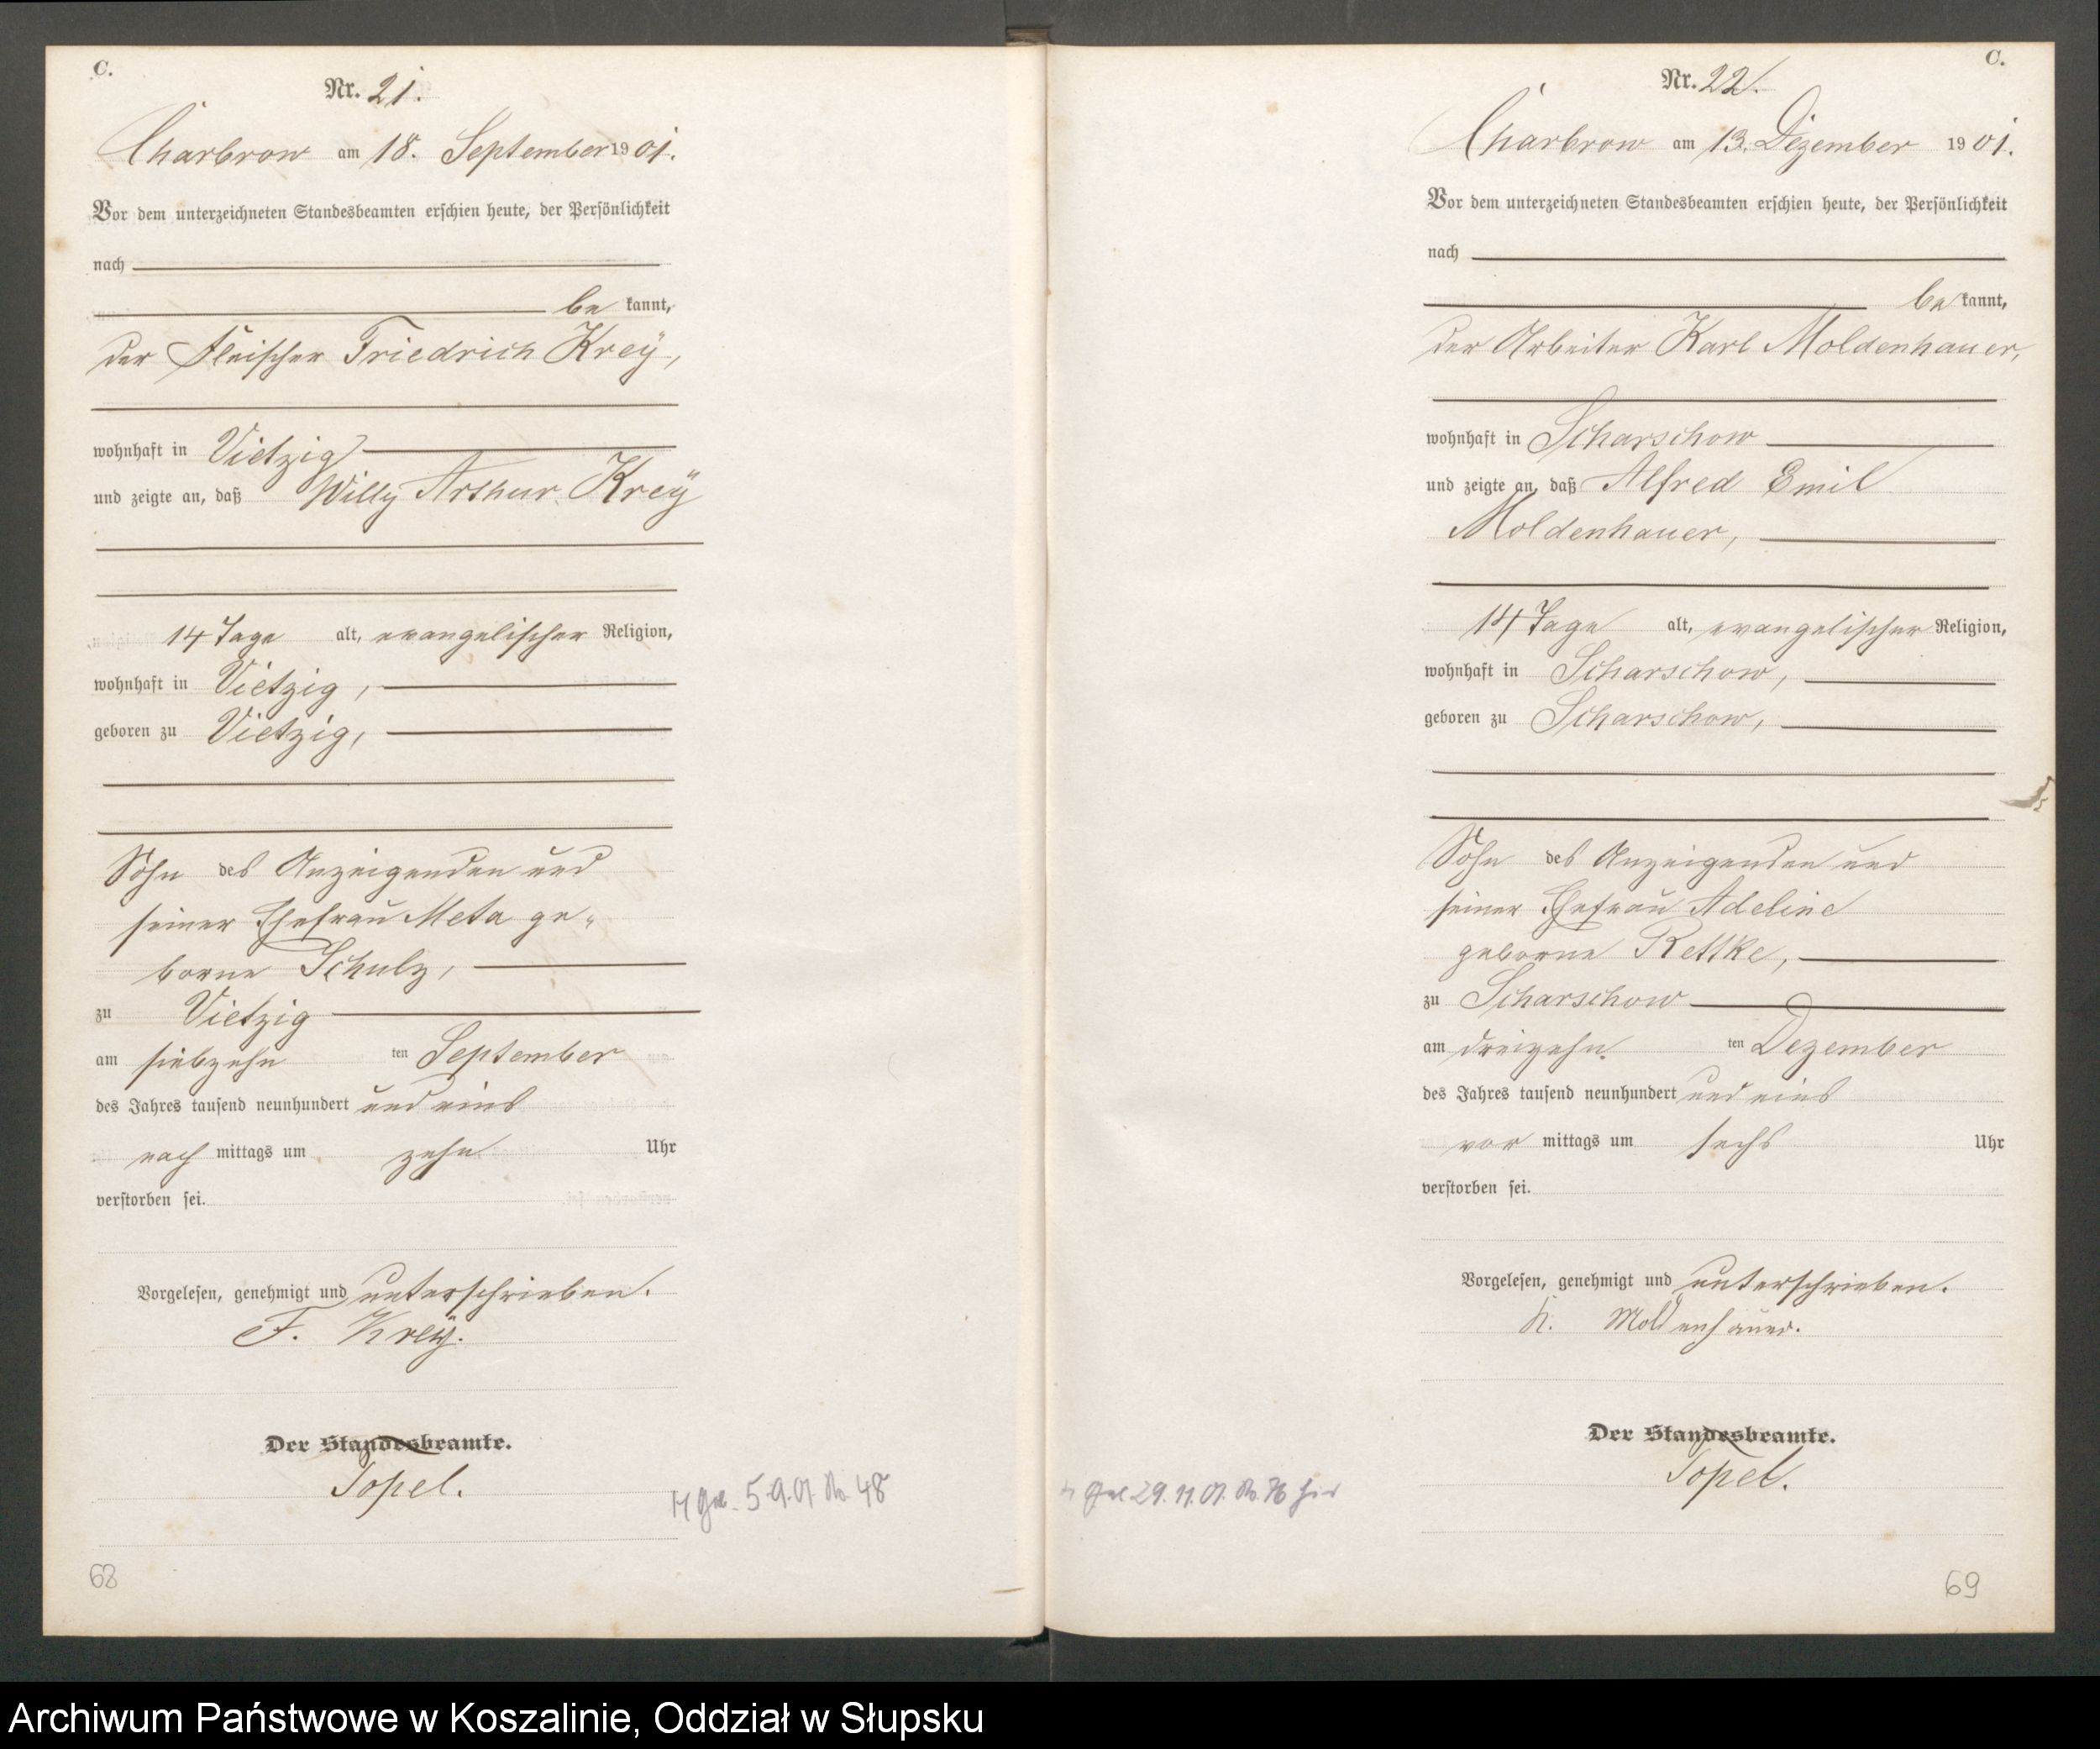 C.
Nr. 21.
Charbrow am 18. September 1901.
Vor dem unterzeichneten Standesbeamten erschien heute, der Persönlichkeit
nach
be kannt,
der Fleischer Friedrich Kreÿ,
wohnhaft in Vietzig
und zeigte an, daß Willy Arthur Kreÿ
14 Tage alt, evangelischer Religion,
wohnhaft in Vietzig,
geboren zu Vietzig,
Sohn des Anzeigenden und
seiner Ehefrau Meta ge-
borne Schulz,
zu Vietzig
am siebzehn ten September
des Jahres tausend neunhundert und eins
nach mittags um zehn Uhr
verstorben sei.
Vorgelesen, genehmigt und unterschrieben.
F. Kreÿ.
Der Standesbeamte.
Topel.
5.9.01 No 48
68
C.
Nr. 22.
Charbrow am 13. Dezember 1901.
Vor dem unterzeichneten Standesbeamten erschien heute, der Persönlichkeit
nach
be kannt,
der Arbeiter Karl Moldenhauer,
wohnhaft in Scharschow
und zeigte an, daß Alfred Emil
Moldenhauer,
14 Tage alt, evangelischer Religion,
wohnhaft in Scharschow,
geboren zu Scharschow,
Sohn des Anzeigenden und
seiner Ehefrau Adeline
geborne Rettke,
zu Scharschow
am dreizehn ten Dezember
des Jahres tausend neunhundert und eins
vor mittags um sechs Uhr
verstorben sei.
Vorgelesen, genehmigt und unterschrieben.
K. Moldenhauer.
Der Standesbeamte.
Topel.
29.11.01. No. 76
69
Archiwum Państwowe w Koszalinie, Oddział w Słupsku